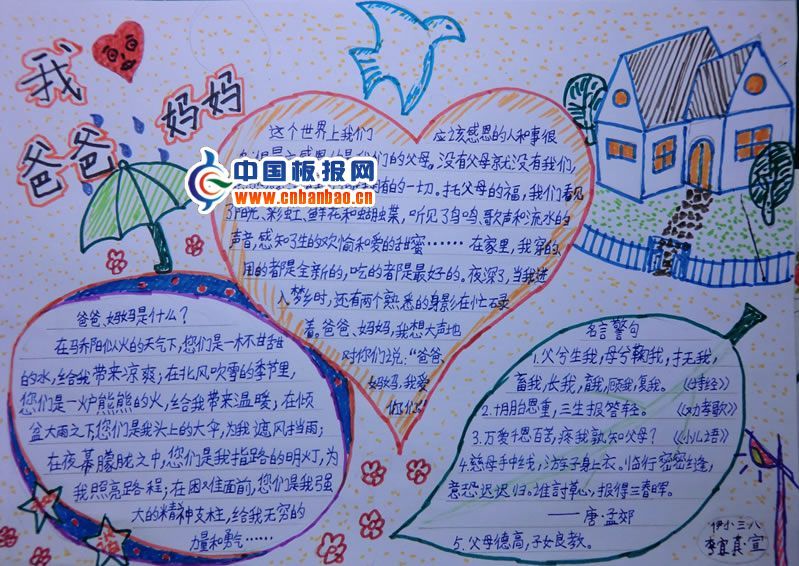 我
爸爸妈妈
中国板报网
www.cnbanbao.cn
这个世界上我们 应该感恩的人和事很
的父母。没有父母就没有我们,
的一切。托父母的福,我们看见
了阳光、彩虹、鲜花和蝴蝶,听见了鸟鸣、歌声和流水的
声音,感知了生的欢愉和爱的甜蜜……在家里,我穿的、
用的都是全新的,吃的都是最好的。夜深了,当我进
入梦乡时,还有两个熟悉的身影在忙碌
着。爸爸、妈妈,我想大声地
对你们说:“爸爸、
妈妈,我爱
你们!”
爸爸、妈妈是什么?
在马乔阳似火的天气下,您们是一杯甘甜
的水,给我带来凉爽;在北风吹雪的季节里,
您们是一炉熊熊的火,给我带来温暖;在倾
盆大雨之下,您们是我头上的大伞,为我遮风挡雨;
在夜幕朦胧之中,您们是我指路的明灯,为
我照亮路程;在困难面前,您们是我强
大的精神支柱,给我无穷的
力量和勇气……
名言警句
1.父兮生我,母兮鞠我,抚我,
畜我,长我,育我,顾我,复我。《诗经》
2.十月胎恩重,三生报答轻。《劝孝歌》
3.万爱千恩百苦,疼我孰知父母?《小儿语》
4.慈母手中线,游子身上衣。临行密密缝,
意恐迟迟归。谁言寸草心,报得三春晖。
——唐·孟郊
5.父母德高,子女良教。
伊小三八
李宜真·宣